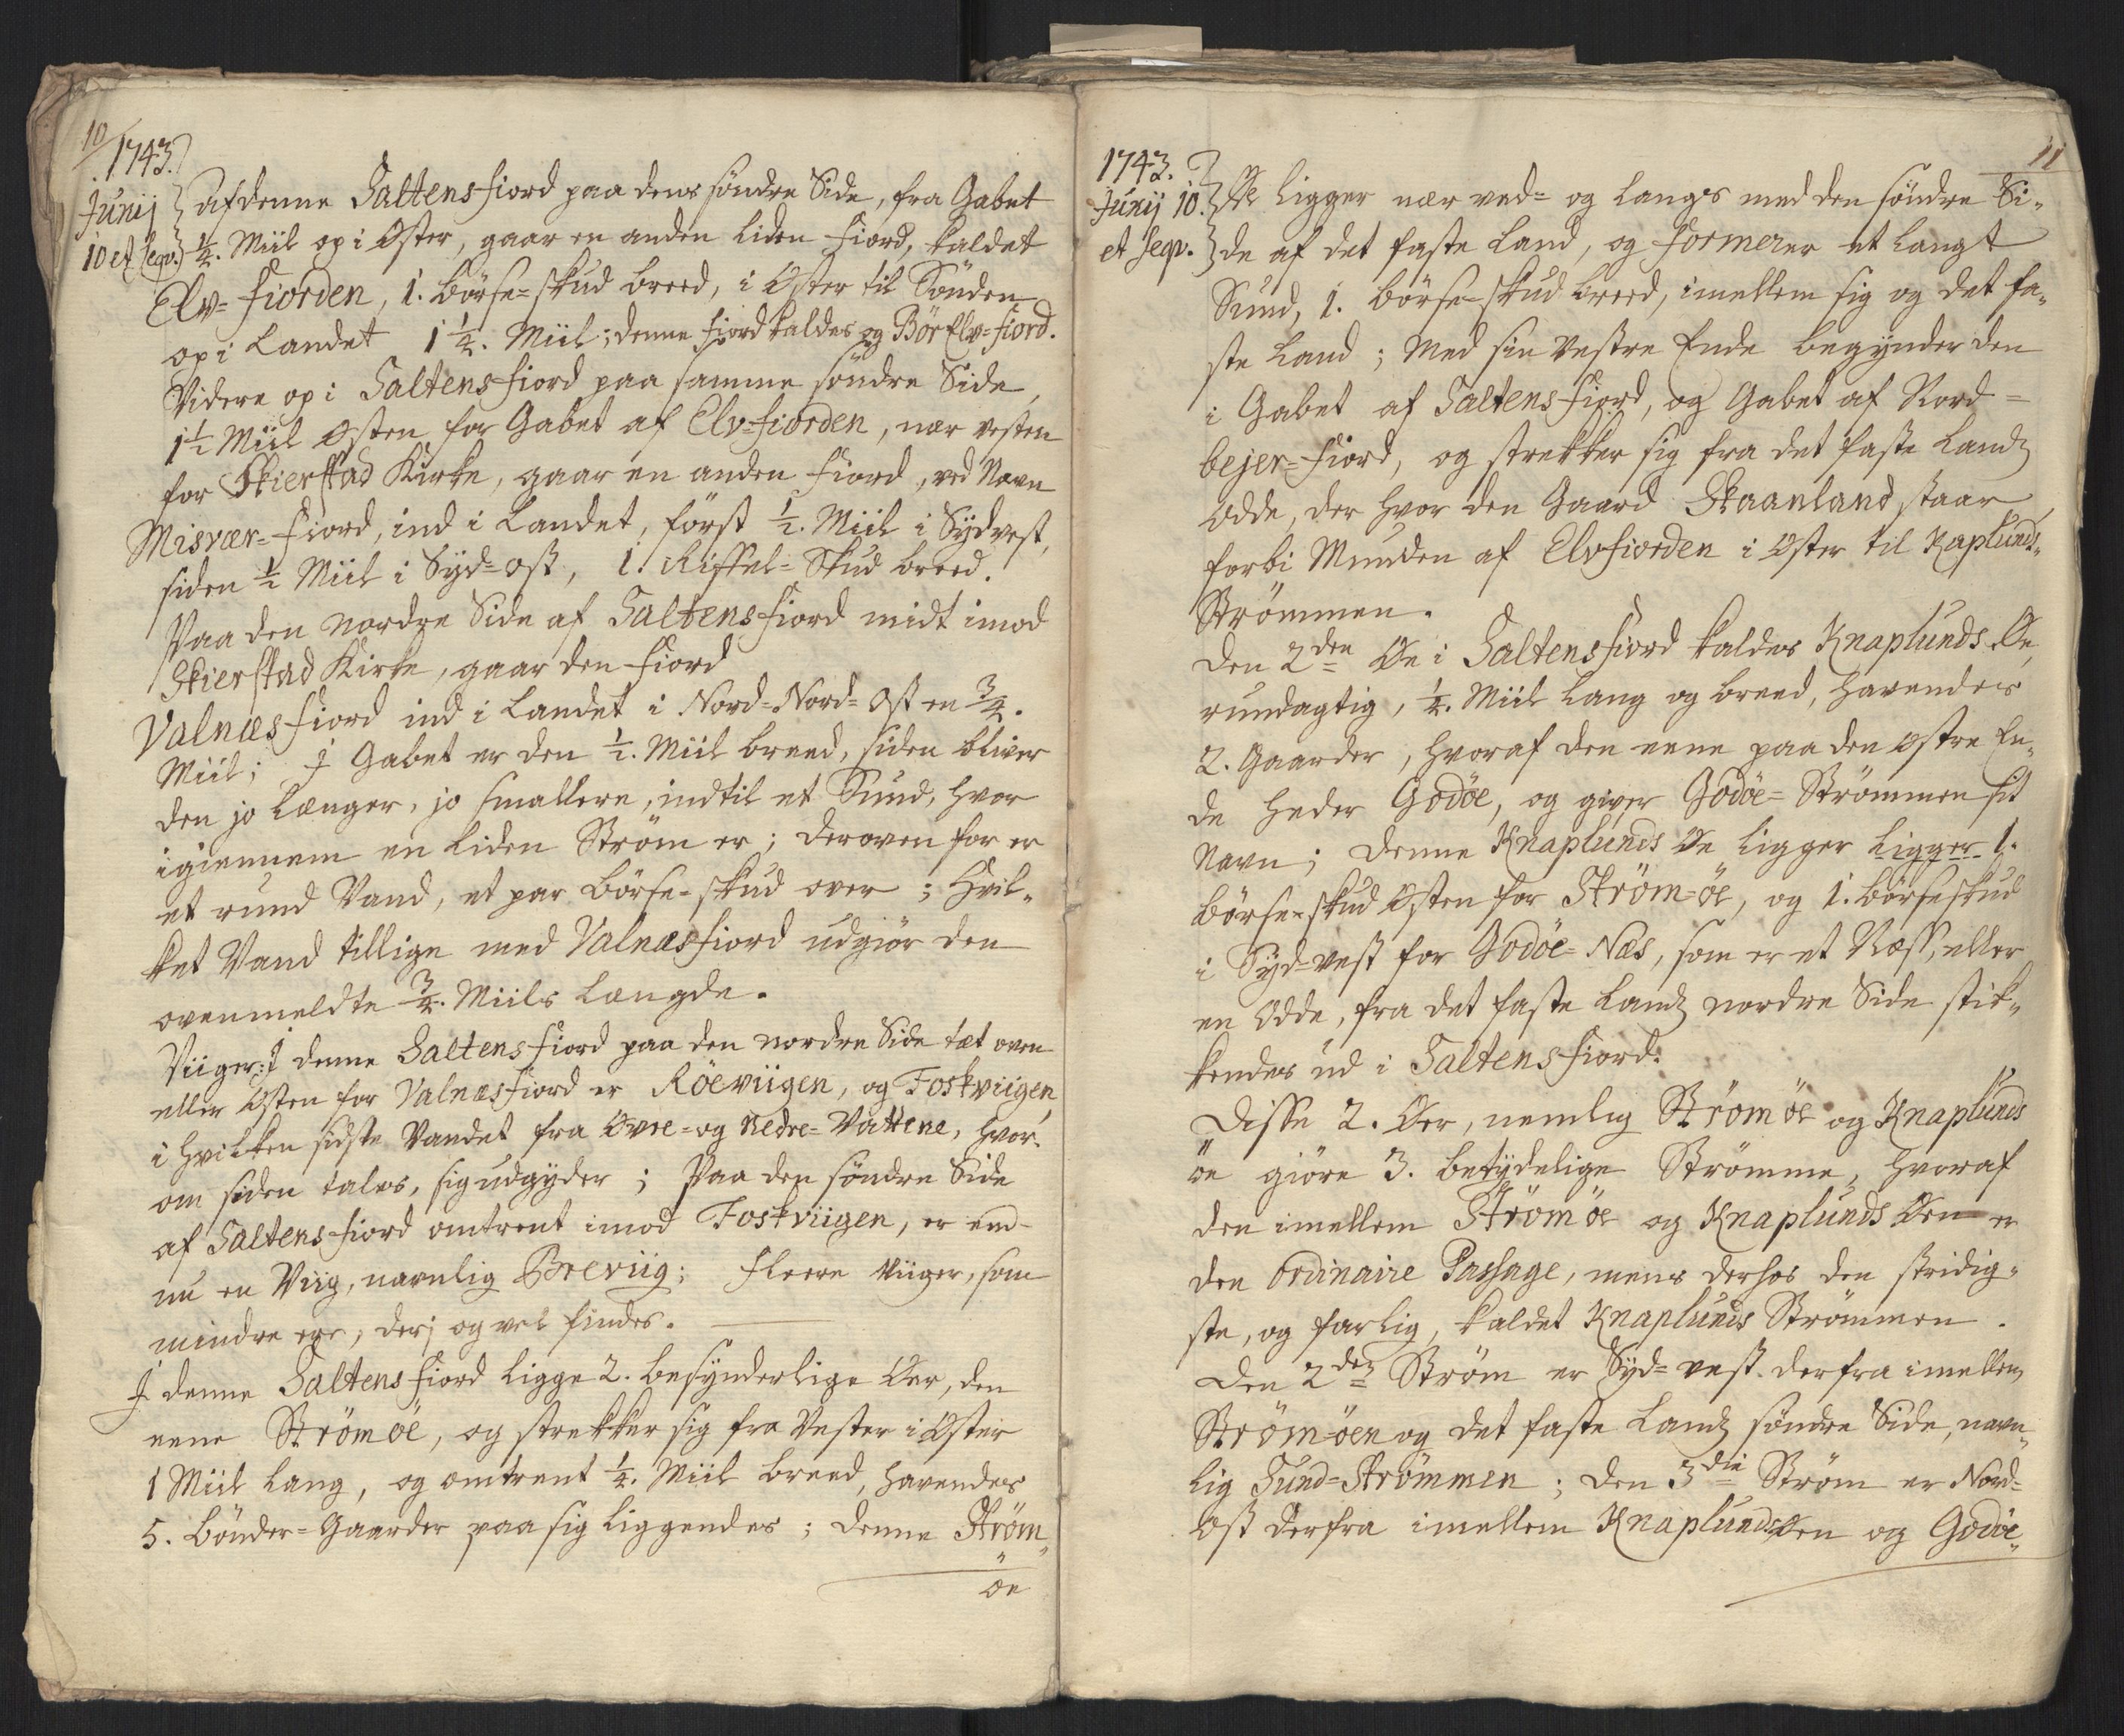 10
1743.
Junij
10 et seqv.
af denne Saltens fiord paa dens söndre Side, fra Gabet
1/4. Miil op i Øster, gaar en anden liden fiord, kaldet
Elv-fiorden, 1. börse-skud breed, i Øster til Sönden
op i Landet 1 1/4. Miil; denne fiord kaldes og Bör Elv-fiord.
Videre op i Saltens fiord paa samme söndre Side,
1 1/2 Miil Østen for Gabet af Elv-fiorden, nær vesten
for Skierstad Kirke, gaar en anden fiord, ved Navn
Misvær-fiord, ind i Landet, först 1/2. Miil i Sydvest,
siden 1/2 Miil i Syd-Ost, 1. Riffel-Skud breed.
Paa den nordre Side af Saltens fiord midt imod
Skierstad Kirke, gaar den fiord
Valnæs fiord ind i Landet i Nord-Nord-Ost en 3/4.
Miil; I Gabet er den 1/2. Miil breed, siden bliver
den jo længer, jo smallere, indtil et Sund, hvor
igiennem en liden Ström er; deroven for er
et rund Vand, et par börse-skud over; Hvil-
ket Vand tillige med Valnæsfiord udgiör den
ovenmeldte 3/4. Miils Længde.
Viiger: I denne Saltens fiord paa den nordre Side tæt oven
eller Østen for Valnæsfiord er Röeviigen, og Foskviigen,
i hvilken sidste Vandet fra Øvre- og Nedre-Vattene, hvor-
om siden tales, sig udgyder; Paa den söndre Side
af Saltens fiord omtrent imod Foskviigen, er end-
nu en Viig, navnlig Breviig; Fleere Viiger, som
mindre ere, derj og vel findes.
I denne Saltens fiord ligge 2. besynderlige Øer, den
eene Strömöe, og strekker sig fra Vester i Øster
1 Miil lang, og omtrent 1/4. Miil breed, havendes
5. Bönder-Gaarder paa sig liggendes; denne Ström-
öe
11
1743.
Junij 10.
et seqv.
öe ligger nær ved- og langs med den söndre Si-
de af det faste Land, og formerer et langt
Sund, 1. börse-skud breed, imellem sig og det fa-
ste Land; Med sin Vestre Ende begynder den
i Gabet af Saltens fiord, og Gabet af Nord-
bejer-fiord, og strekker sig fra det faste Landz
Odde, der hvor den Gaard Skaanland staar,
forbi Munden af Elvfiorden i Øster til Kaplunds-
Strömmen.
Den 2den Øe i Saltensfiord kaldes Knaplunds Øe,
rundagtig, 1/4. Miil lang og breed, havendes
2. Gaarder, hvoraf den eene paa den Østre En-
de heder Godöe, og giver Godöe-Strömmen sit
Navn; denne Knaplunds Øe ligger ligger 1.
börse-skud Østen for Ström-öe, og 1. börseskud
i Syd-vest for Godöe-Næs, som er et Næss, eller
en Odde, fra det faste Landz nordre Side stik-
kendes ud i Saltensfiord.
Disse 2. Øer, nemlig Strömöe og Knaplunds
öe giöre 3. betydelige Strömme, hvoraf
den imellem Strömöe og Knaplunds Øen er
den ordinaire Passage, mens derhos den stridig-
ste, og farlig, kaldet Knaplunds Strömmen.
Den 2den Ström er Syd-vest derfra imellem
Ström-öen og det faste Landz söndre Side, navn-
lig Sund-Strömmen; den 3die Ström er Nord-
Ost derfra imellem Knaplundsøen og Godöe-